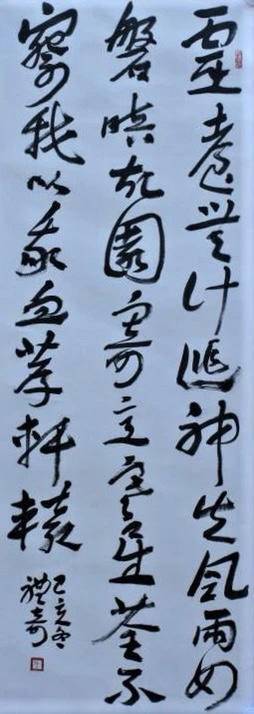 靈臺無計逃神矢風雨如
磐暗故園寄意寒星荃不
察我以我血薦軒轅
己亥冬